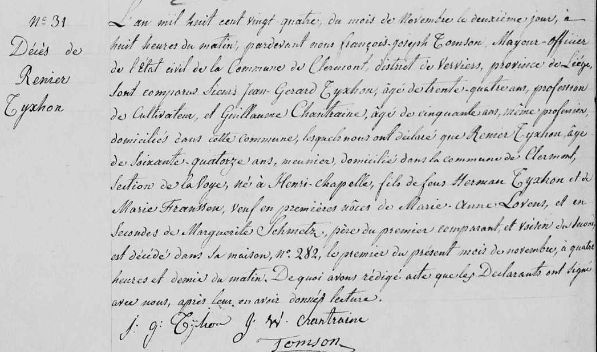 N.º 31
Décès de
Renier
Tyxhon
L'an mil huit cent vingt quatre, du mois de Novembre le deuxième jour, à
huit heures du matin, pardevant nous françois-joseph Tomson, Mayeur-officier
de l'état civil de la Commune de Clermont, district de Verviers, province de Liége,
sont comparus Sieurs Jean-Gerard Tyxhon, âgé de trente-quatre ans, profession
de Cultivateur, et Guillaume Chantraine, âgé de cinquante ans, même profession,
domiciliés dans cette commune, lesquels nous ont déclaré que Renier Tyxhon, âgé
de Soixante quatorze ans, meunier, domicilié dans la commune de Clermont,
Section de la Voye, né à Henri-Chapelle, fils de feus Herman Tyxhon et de
Marie Franssen, veuf en premières nôces de Marie-Anne Lovens, et en
Secondes de Marguerite Schmetz, père du premier comparant, et voisin du second,
est décédé dans sa maison, N.º 282, le premier du présent mois de novembre, à quatre
heures et demie du matin. De quoi avons rédigé acte que les Déclarants ont signé
avec nous, après leur en avoir donné lecture.
j. g: Tyxhon j. W. chantraine
Tomson